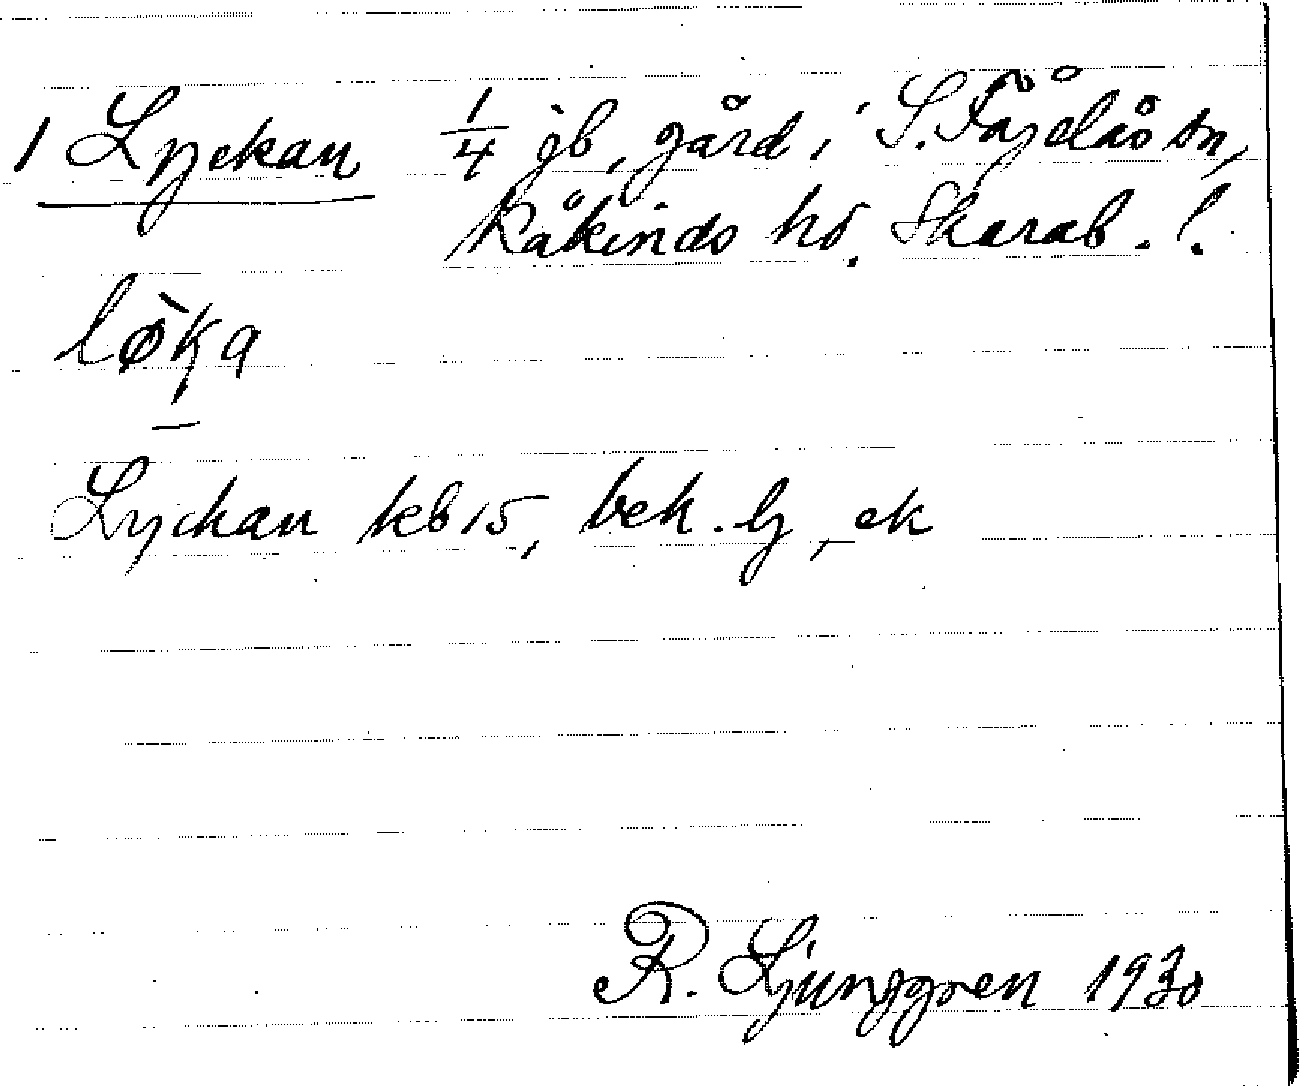 1 Lyckan 1/4 jb, gård i S. Fågelås sn,
Kåkinds hd. Skarab. l.
lø̀ka
Lyckan kb 15, bek. lj, ek
R. Ljunggren 1930